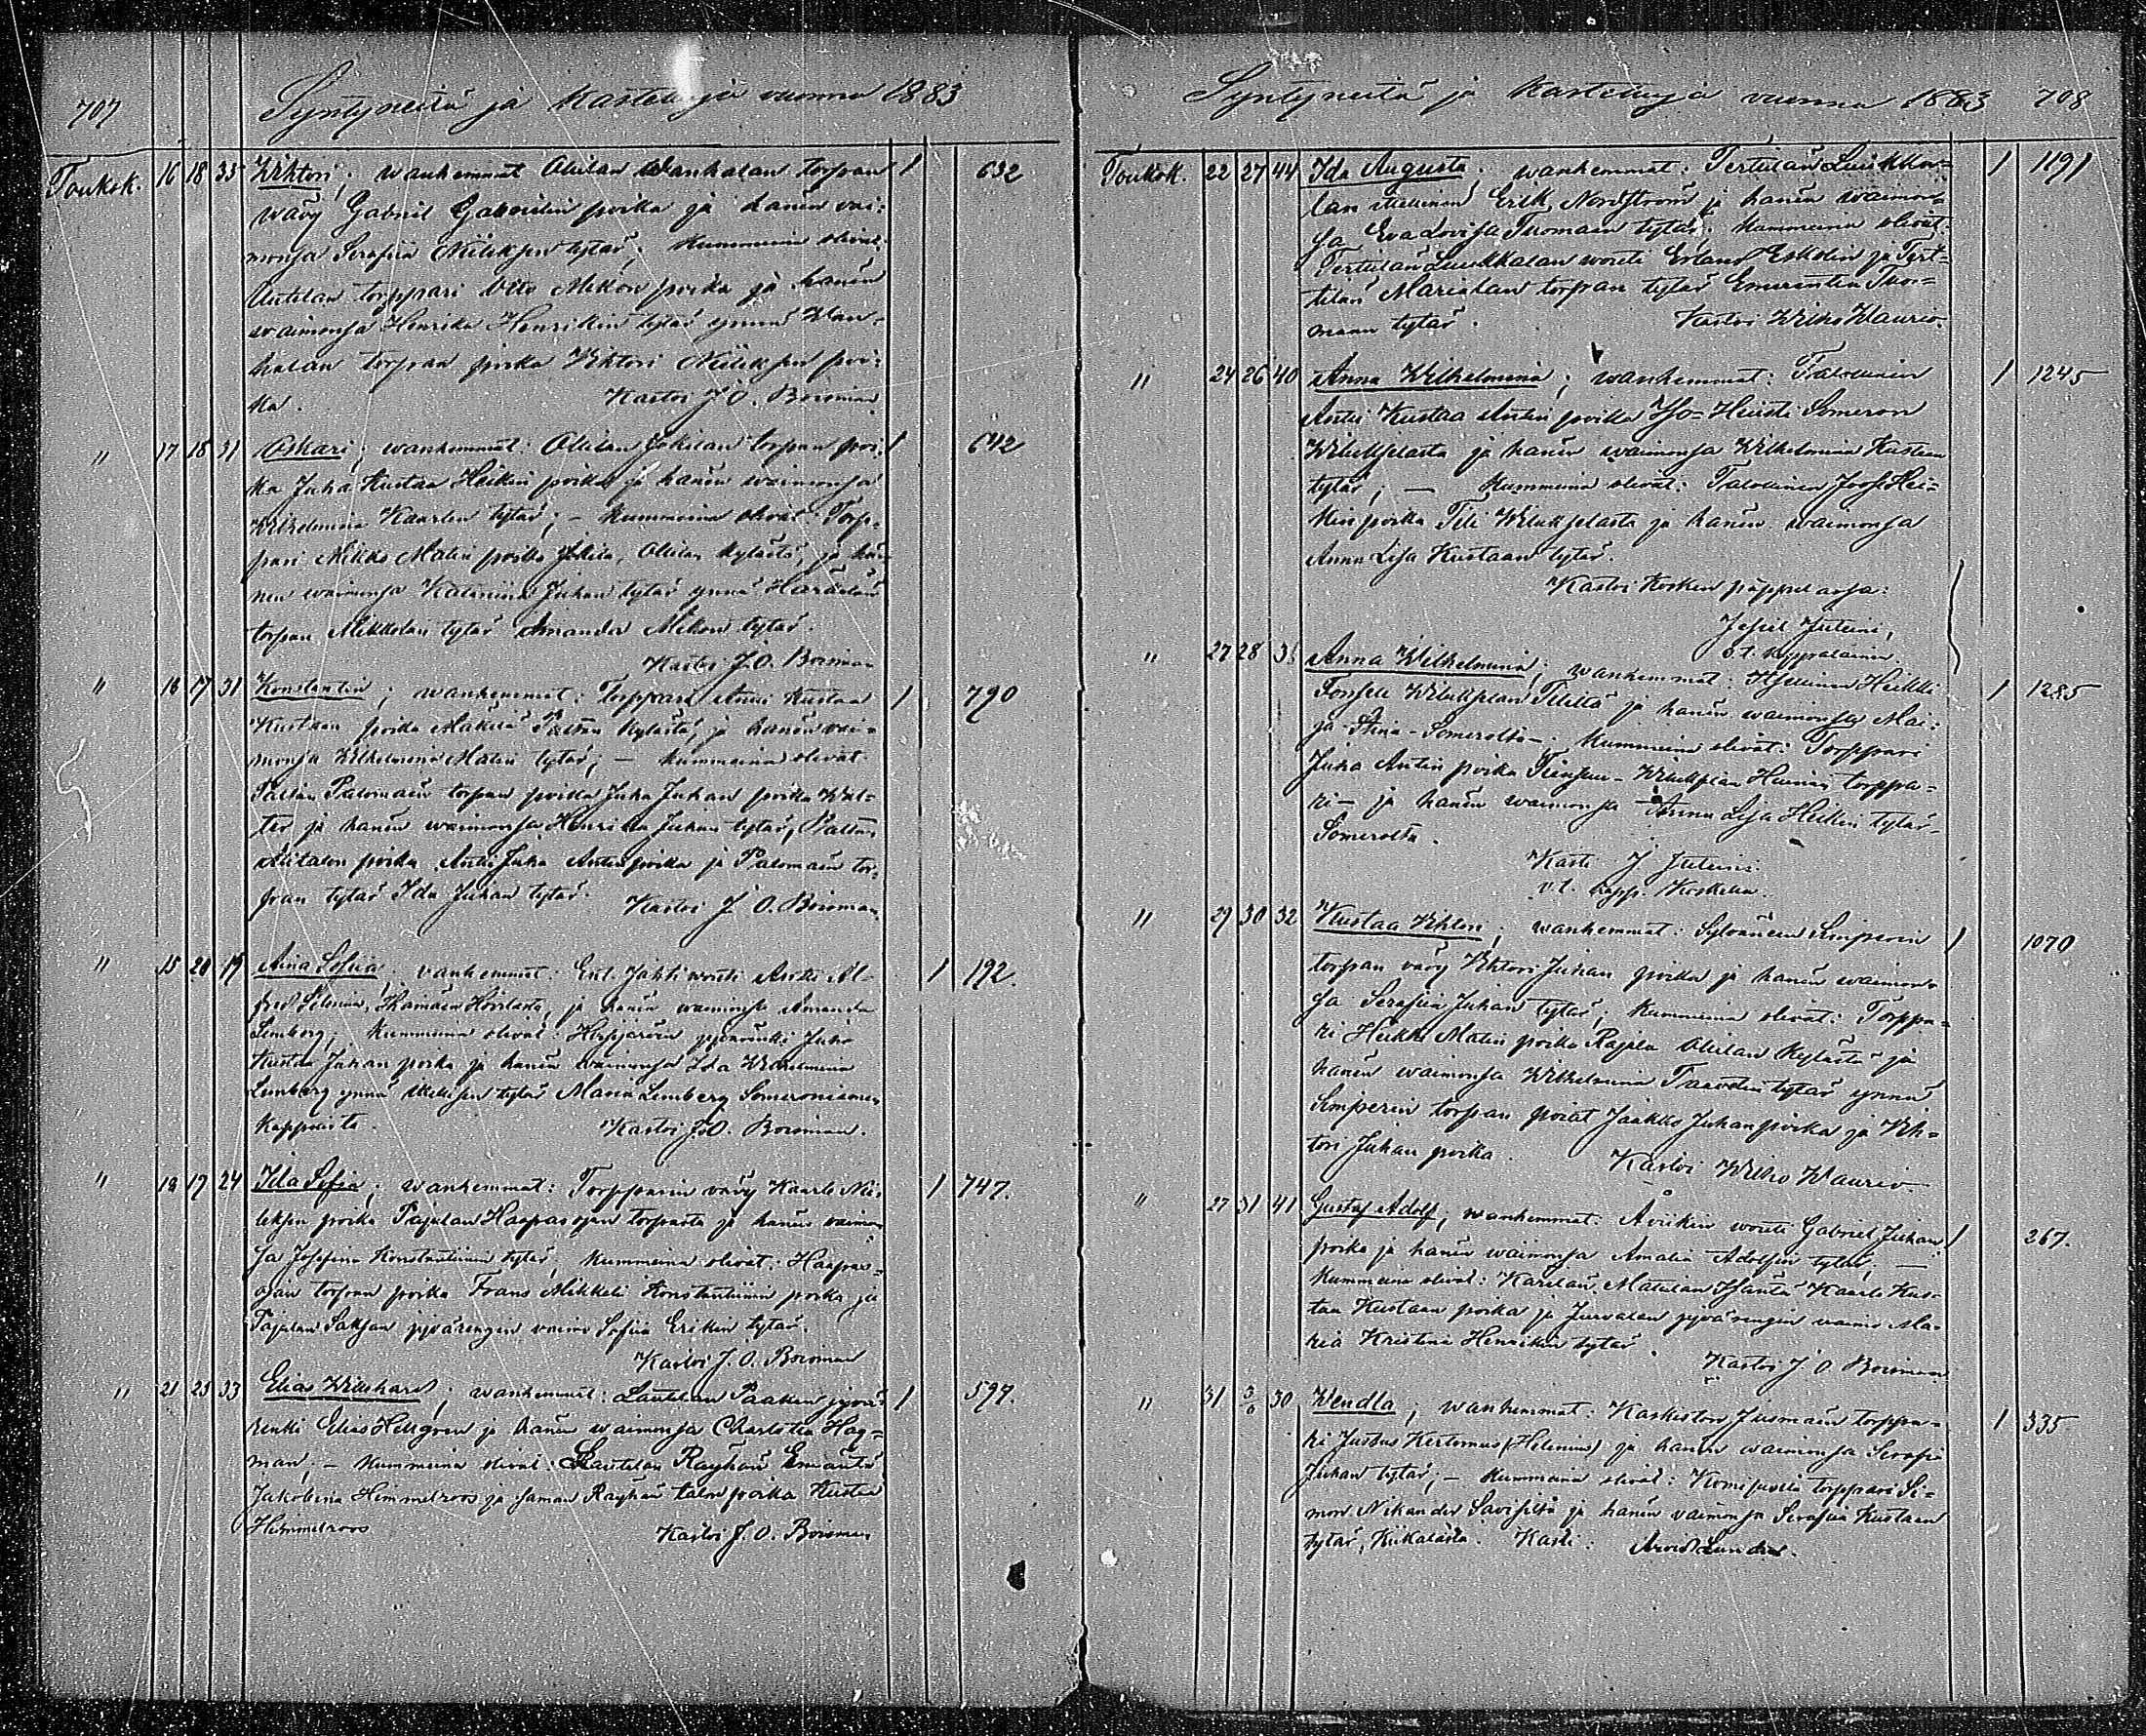 707 Syntyneitä ja kastetuja vuonna 1883
Toukok. 16 18 33 Wihtori; wanhemmat Ollilan Wanhatalan torpan 1 632
wävy Gabriel Gabrielin poika ja hänen vai-
monsa Serafiia Niileksen tytär; kummeina olivat:
torppari Otto Mikon poika ja hänen
waimonsa Henrika Henrikin tytär ynnä Wan-
halan torpan poika Wihtori Niileksen poi-
ka. Kastoi J. O. Boisman
" 17 18 31 Oskari; wanhemmat: Ollilan Jokilan torpan poi- 1 642
ka Juha Kustaa Heikin poika ja hänen waimonsa
Wilhelmina Kaarlen tytär; – kummeina olivat: Torp-
pari Mikko Matin poika Jokila, Ollilan kylästä, ja hä-
nen waimonsa Katariina Juhan tytär ynnä Härjälän
torpan Mikkolan tytär Amanda Mikon tytär.
Kastoi J. O. Boisman
" 16 17 31 Konstantin; wanhemmat: Torppari Antti Kustaa 1 790
Kustaan poika Mäkilä Paltan kylästä, ja hänen vai-
monsa Wilhelmina Matin tytär; – kummeina olivat
Paltan Palomäen torpan poika Juha Juhan poika Wal-
ter ja hänen waimonsa Henrika Juhan tytär, Paltan
Alitalon poika Antti Juha Antin poika ja Palomäen tor-
pan tytär Ida Juhan tytär. Kastoi J. O. Boisman
" 15 20 19 Aina Sofiia; vanhemmat: Ent. Jahti wouti Antti Al- 1 192.
fred Silenius, Hovilasta, ja hänen waimonsa Amanda
Lemberg; kummeina olivat: Hirsjärven pysärenki Juho
Kustaa Juhan poika ja hänen waimonsa Ida Wilhelmina
Lemberg ynnä tytär Maria Lemberg Someroniemen
kappelista. Kastoi J. O. Boisman.
" 12 17 24 Ida Sofia; wanhemmat: Torpparin vävy Kaarle Nii- 1 747.
leksen poika Pajulan Haapasojan torpasta ja hänen vaimon-
sa Josefina Konstantiinin tytär, kummeina olivat: Haapas-
ojan torpan poika Frans Mikkeli Konstantiinin poika ja
Pajulan Saksan pysärengin vaimo Sofiia Erikin tytär.
Kastoi J. O. Boisman
" 21 23 33 Elias Willehard; wanhemmat: Lautelan Paakun jyvä- 1 597.
renki Elias Hellgren ja hänen waimonsa Charlotta Hag-
man; – kummeina olivat: Lautelan Räyhän Emäntä
Jakobina Himmelroos ja saman Räyhän talon poika Kustaa
Himmelroos Kastoi J. O. Boisman
Syntyneitä ja kastetuja vuonna 1883 708
Toukok. 22 27 44 Ida Augusta; wanhemmat: Terttilän Luukka- 1 1191
lan Erik Nordström ja hänen waimon-
sa Eva Lovisa Thomaan tytär; kummeina olivat:
Terttilän Luukkalan wouti Erland Eskolin ja Tert-
tilän Marialan torpan tytär Emerentia Tuo-
maan tytär. Kastoi Wilho Waurio.
" 24 26 40 Anna Wilhelmina; wanhemmat: Talollinen 1 1245
Antti Kustaa Antin poika Iso-Heiste Someron
Wiluksjelasta ja hänen waimonsa Wilhelmina Kustaan
tytär; – kummeina olivat: Talollinen Joose Hei-
kin poika Tili Wiluksjelasta ja hänen waimonsa
Anna Lisa Kustaan tytär.
Kastoi Kosken pappilassa:
Juteini,
v. t. kappalainen.
" 27 28 Anna Wilhelmina; wanhemmat: Itsellinen Heikki 1 1285
Fonsell Wiluksjelan Tililtä ja hänen waimonsa Mai-
ja Stina - Somerolta -; kummeina olivat: Torppari
Juha Antin poika - Wiluksjelan torppa-
ri - ja hänen waimonsa - Anna Lisa Heikin tytär -
Somerolta.
Kasti J Juteini.
v.t. kapp. Koskella.
" 29 30 32 Kustaa Wihtori; wanhemmat: Sylvänään Simperin 1 1070
torpan vävy Wihtori Juhan poika ja hänen waimon-
sa Serafiia Juhan tytär; kummeina olivat: Torppa-
ri Heikki Matin poika Rajala Ollilan kylästä ja
hänen waimonsa Wilhelmina Taavetin tytär ynnä
Simperin torpan pojat Jaakko Juhan poika ja Wih-
tori Juhan poika. Kastoi Wilho Waurio.
" 27 31 41 Gustaf Adolf; wanhemmat: Åvikin wouti Gabriel Juhan 1 267.
poika ja hänen waimonsa Amalia Adolfin tytär; –
kummeina olivat: Karilan Matulan Isäntä Kaarle Kus-
taa Kustaan poika ja Jurvalan jyvärengin waimo Ma-
ria Kristina Henrikin tytär. Kastoi J. O. Boisman
" 31 3/6 30 Wendla; wanhemmat: Kaskiston Jusmäen torppa- 1 335
ri Justus Kertomus (Helenius) ja hänen waimonsa Serafia
Juhan tytär; – kummeina olivat: torppari Si-
mon Nikander Savisilta ja hänen vaimonsa Serafiia Kustaan
tytär, Kiikalasta. Kasti: Arvid Lunden.